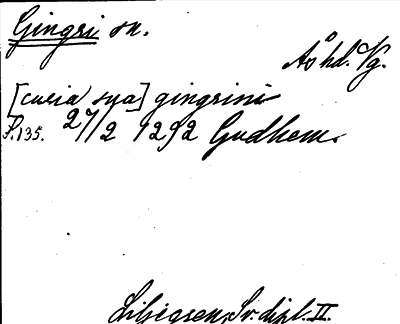 Gingri sn.
Ås hd. Vg.
[curia sua] gingrini
S. 135. 27/2 1292 Gudhem.
Liljegren, Sv. dipl. II.